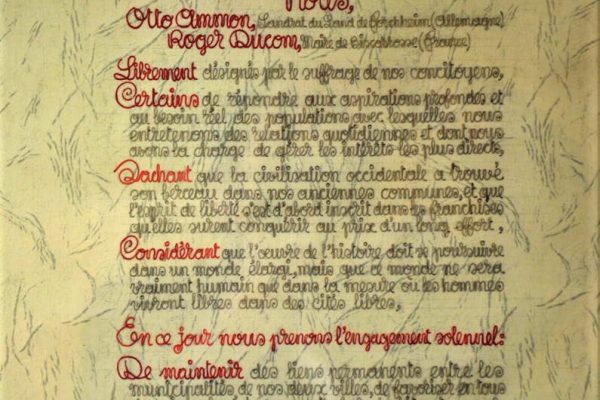 Nous,
Otto Ammon, Landrat du Land de Forchheim (Allemagne)
Roger Ducom, Maire de Biscarrosse (France)
Librement désignés par le suffrage de nos concitoyens,
Certains de répondre aux aspirations profondes et
au besoin réel des populations avec lesquelles nous
entretenons des relations quotidiennes et dont nous
avons la charge de gérer les intérêts les plus directs,
Sachant que la civilisation occidentale a trouvé
son berceau dans nos anciennes communes, et que
l'esprit de liberté s'est d'abord inscrit dans les franchises
qu'elles surent conquérir au prix d'un long effort,
Considérant que l'œuvre de l'histoire doit se poursuivre
dans un monde élargi, mais que ce monde ne sera
vraiment humain que dans la mesure où les hommes
vivront libres dans des cités libres,
En ce jour nous prenons l'engagement solennel:
De maintenir des liens permanents entre les
municipalités de nos deux villes, de favoriser en tous